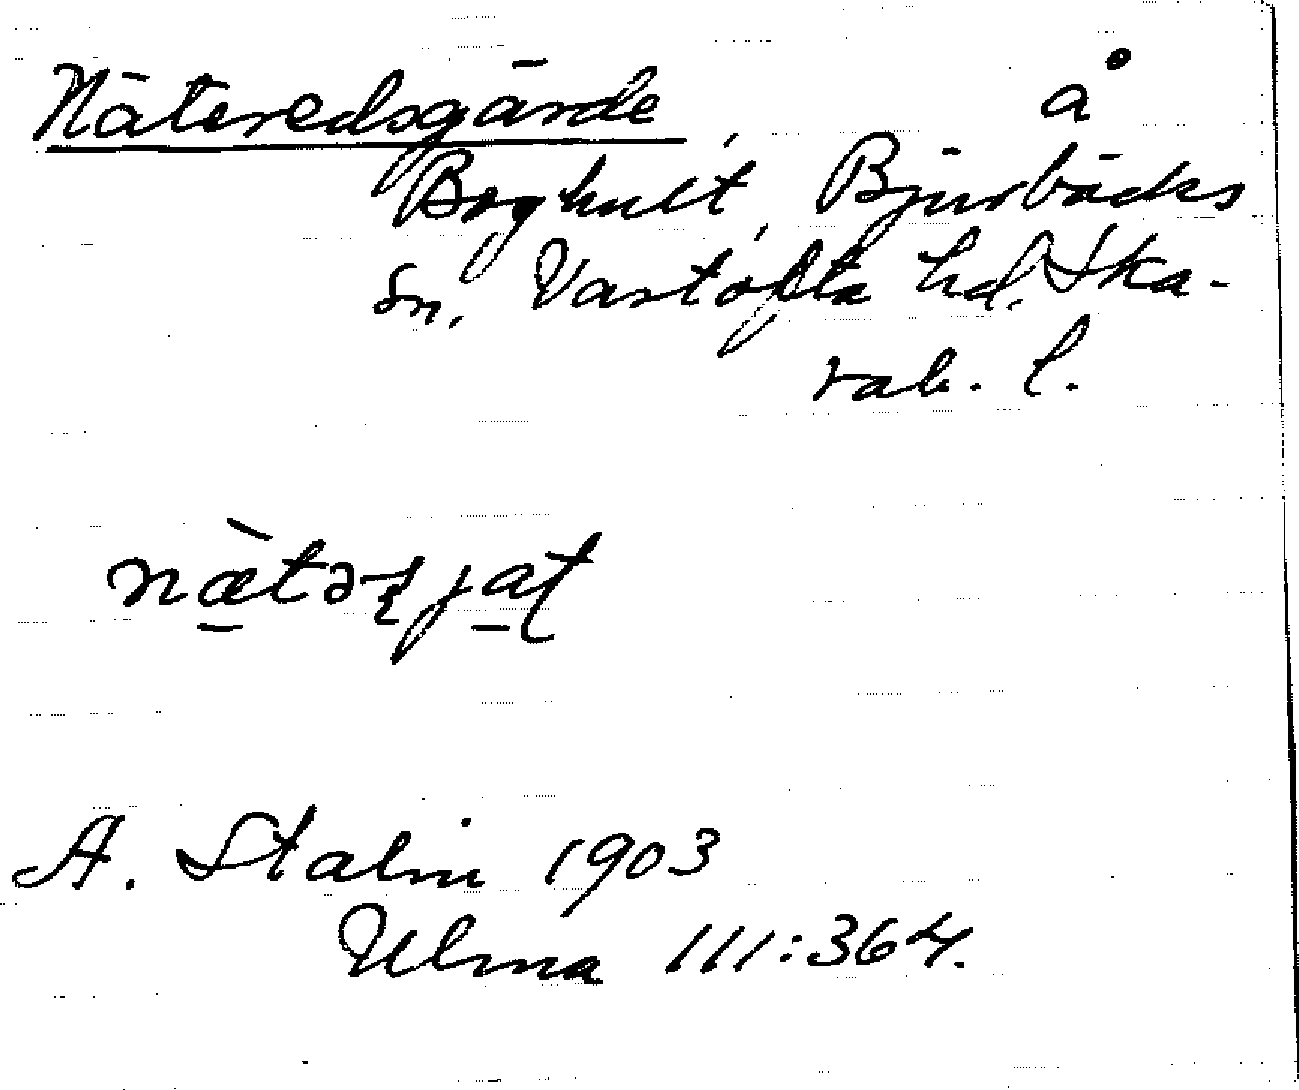 Näteredsgärde, å
Boghult, Bjurbäcks
sn, Vartofta hd. Ska-
rab. l.
A. Stalin 1903
Ulma 111:364.